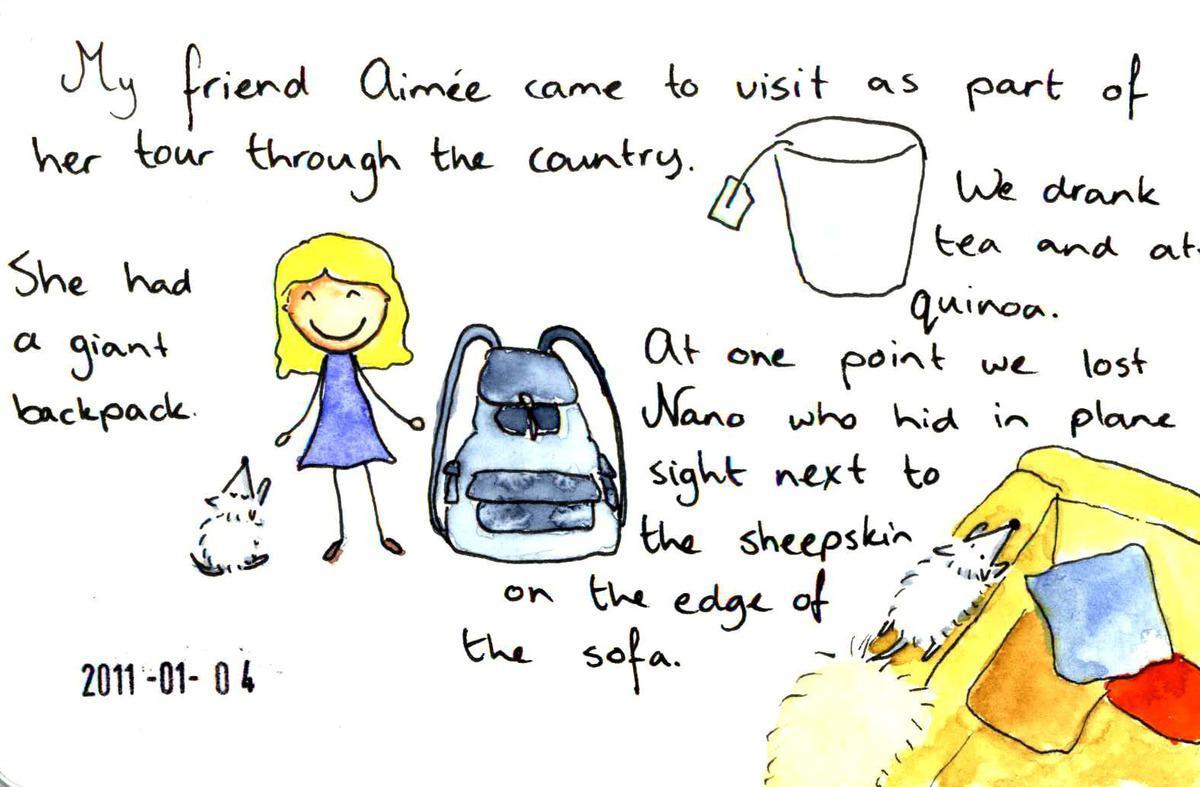 My friend Aimée came to visit as part of
her tour through the country.
We drank
tea and at
quinoa.
She had
a giant
backpack.
At one point we lost
Nano who hid in plane
sight next to
the sheepskin
on the edge of
the sofa.
2011-01-04